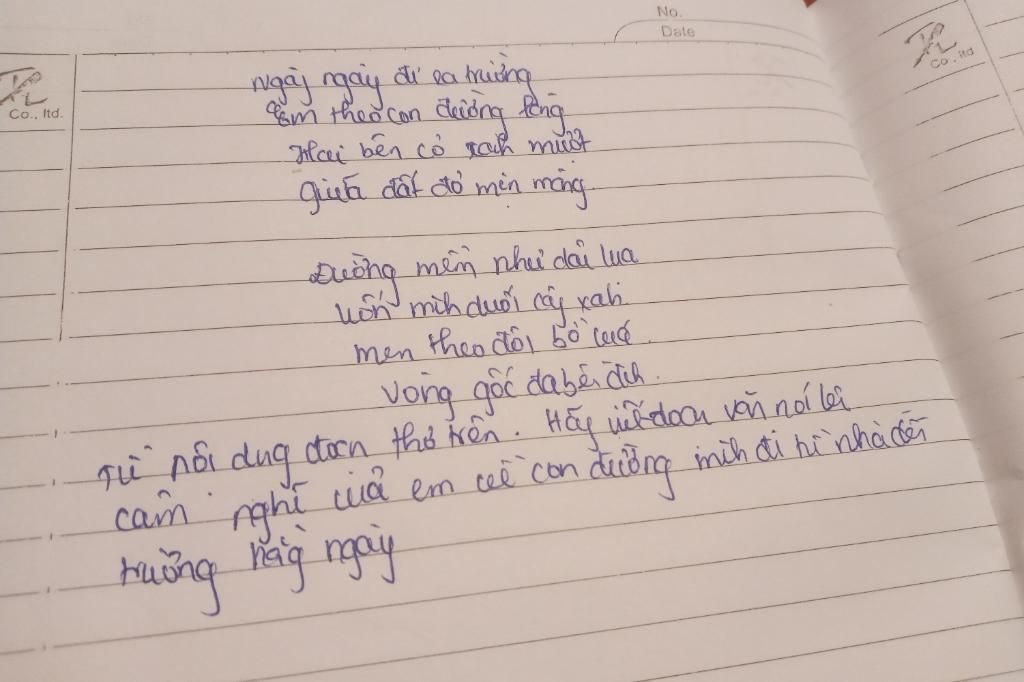 No.
Date
TL
Co., ltd.
TL
Co., ltd
Ngày ngày đi ra trường
Em theo con đường làng
Hai bên cỏ xanh mướt
Giữa đất đỏ mịn màng.
Đường mềm như dải lụa
Uốn mình dưới cây xanh
men theo đôi bờ lúa
Vòng gốc đa bên đình.
Từ nội dung đoạn thơ trên. Hãy viết đoạn văn nói lên
cảm nghĩ của em về con đường mình đi từ nhà đến
trường hàng ngày